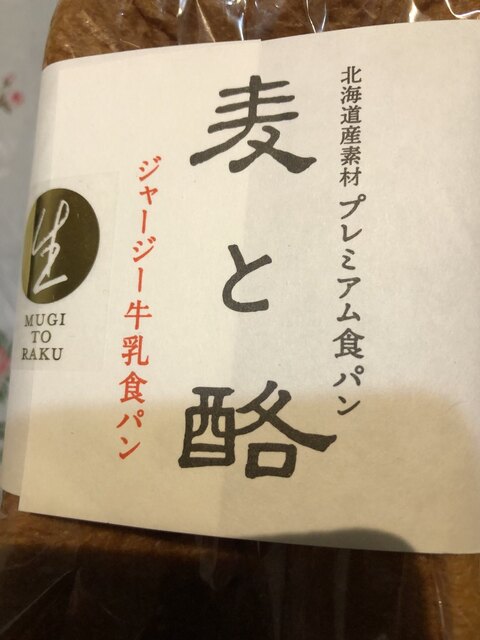 北海道産素材 プレミアム食パン
麦と酪
ジャージー牛乳食パン
生
MUGI
TO
RAKU